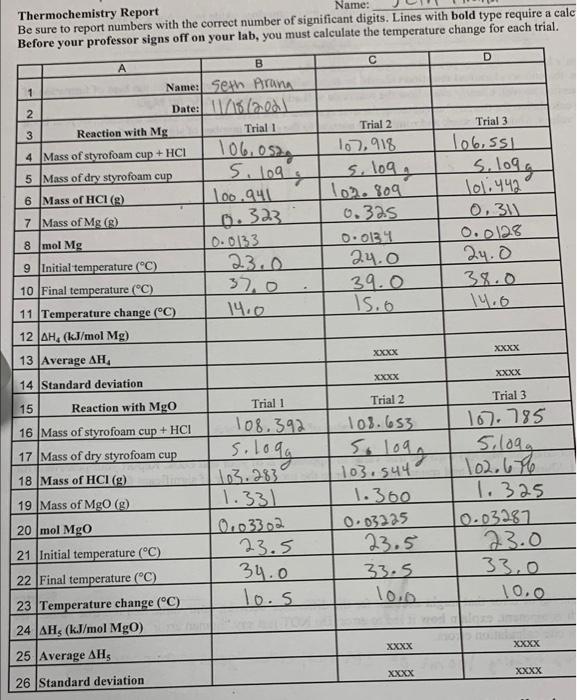 Thermochemistry Report Name:
Be sure to report numbers with the correct number of significant digits. Lines with bold type require a calc
Before your professor signs off on your lab, you must calculate the temperature change for each trial.
A B C D
1 Name: Seth Arana
2 Date: 11/18/2021
3 Reaction with Mg Trial 1 Trial 2 Trial 3
4 Mass of styrofoam cup + HCl 106.052g 107.918 106.551
5 Mass of dry styrofoam cup 5.109g 5.109g 5.109g
6 Mass of HCl (g) 100.941 102.809 101.442
7 Mass of Mg (g) 0.323 0.325 0.311
8 mol Mg 0.0133 0.0134 0.0128
9 Initial temperature (°C) 23.0 24.0 24.0
10 Final temperature (°C) 37.0 39.0 38.0
11 Temperature change (°C) 14.0 15.0 14.0
12 ΔH₄ (kJ/mol Mg)
13 Average ΔH₄ XXXX XXXX
14 Standard deviation XXXX XXXX
15 Reaction with MgO Trial 1 Trial 2 Trial 3
16 Mass of styrofoam cup + HCl 108.392 108.653 107.785
17 Mass of dry styrofoam cup 5.109g 5.109g 5.109g
18 Mass of HCl (g) 103.283 103.544 102.676
19 Mass of MgO (g) 1.331 1.360 1.325
20 mol MgO 0.03302 0.03225 0.03287
21 Initial temperature (°C) 23.5 23.5 23.0
22 Final temperature (°C) 34.0 33.5 33.0
23 Temperature change (°C) 10.5 10.0 10.0
24 ΔH₅ (kJ/mol MgO)
25 Average ΔH₅ XXXX XXXX
26 Standard deviation XXXX XXXX